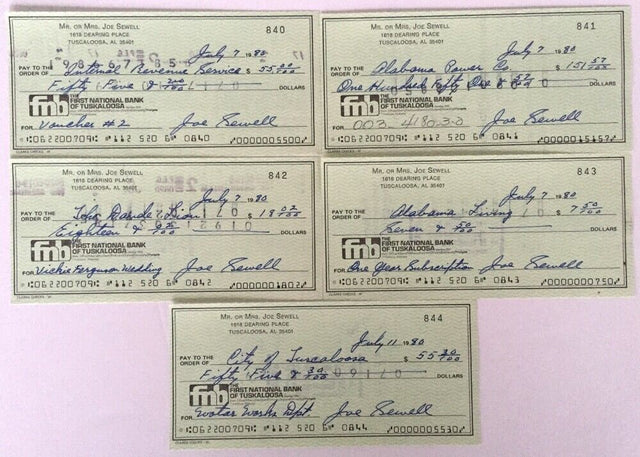 MR. OR MRS. JOE SEWELL
840
1618 DEARING PLACE
TUSCALOOSA, AL 35401
July 7 1980
PAY TO THE ORDER OF Internal Revenue Service $ 55 00/100
Fifty Five & 00/100 DOLLARS
fnb THE FIRST NATIONAL BANK OF TUSKALOOSA
FOR Voucher #2 Joe Sewell
⑆062200709⑆ ⑈112 520 6⑈ 0840 ⑈0000005500⑈
MR. OR MRS. JOE SEWELL
841
1618 DEARING PLACE
TUSCALOOSA, AL 35401
July 7 1980
PAY TO THE ORDER OF Alabama Power Co. $ 151 57/100
One Hundred Fifty One & 57/100 DOLLARS
fnb THE FIRST NATIONAL BANK OF TUSKALOOSA
FOR Joe Sewell
⑆062200709⑆ ⑈112 520 6⑈ 0841 ⑈0000015157⑈
MR. OR MRS. JOE SEWELL
842
1618 DEARING PLACE
TUSCALOOSA, AL 35401
July 7 1980
PAY TO THE ORDER OF $ 18 02/100
Eighteen & 02/100 DOLLARS
fnb THE FIRST NATIONAL BANK OF TUSKALOOSA
FOR Vickie Ferguson Wedding Joe Sewell
⑆062200709⑆ ⑈112 520 6⑈ 0842 ⑈0000001802⑈
MR. OR MRS. JOE SEWELL
843
1618 DEARING PLACE
TUSCALOOSA, AL 35401
July 7 1980
PAY TO THE ORDER OF Alabama Living $ 7 50/100
Seven & 50/100 DOLLARS
fnb THE FIRST NATIONAL BANK OF TUSKALOOSA
FOR One Year Subscription Joe Sewell
⑆062200709⑆ ⑈112 520 6⑈ 0843 ⑈0000000750⑈
MR. OR MRS. JOE SEWELL
844
1618 DEARING PLACE
TUSCALOOSA, AL 35401
July 11 1980
PAY TO THE ORDER OF City of Tuscaloosa $ 55 30/100
Fifty Five & 30/100 DOLLARS
fnb THE FIRST NATIONAL BANK OF TUSKALOOSA
FOR Water Works Dept. Joe Sewell
⑆062200709⑆ ⑈112 520 6⑈ 0844 ⑈0000005530⑈